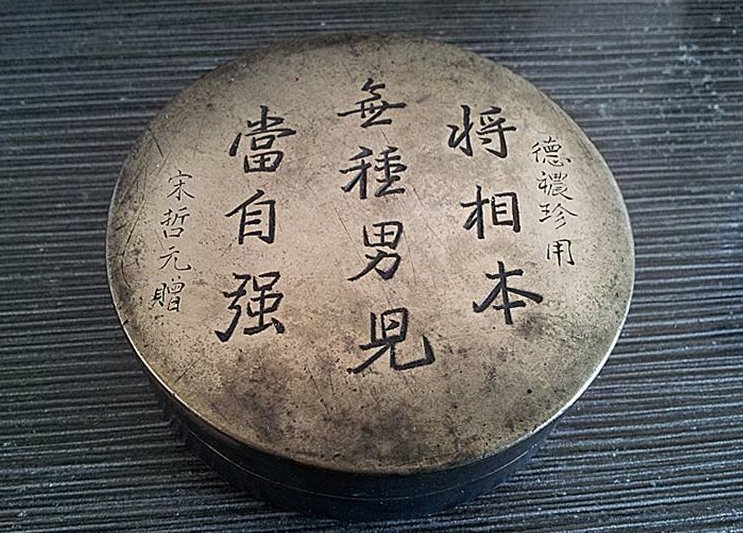 德穠珍用
将相本
無種男児
當自强
宋哲元贈